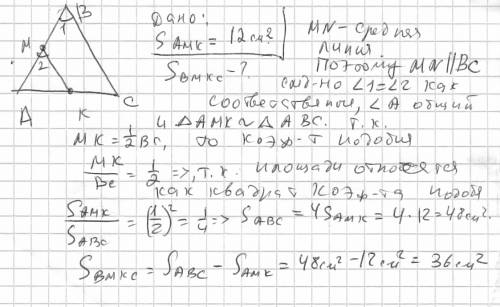 B
1
M
2
A
K
C
Дано:
S АМК = 12 см²
S ВМКС - ?
MN - средняя
линия
Поэтому MN || BC
след-но ∠1=∠2 как
соответственные, ∠A общий
и △ AMK ~ △ ABC. т.к.
MK = 1/2 BC, то коэф-т подобия
MK/BC = 1/2 =>, т.к. площади относятся
как квадрат коэф-та подобия
S AMK / S ABC = (1/2)² = 1/4 => S ABC = 4 S AMK = 4 · 12 = 48 см².
S BMKC = S ABC - S AMK = 48 см² - 12 см² = 36 см²